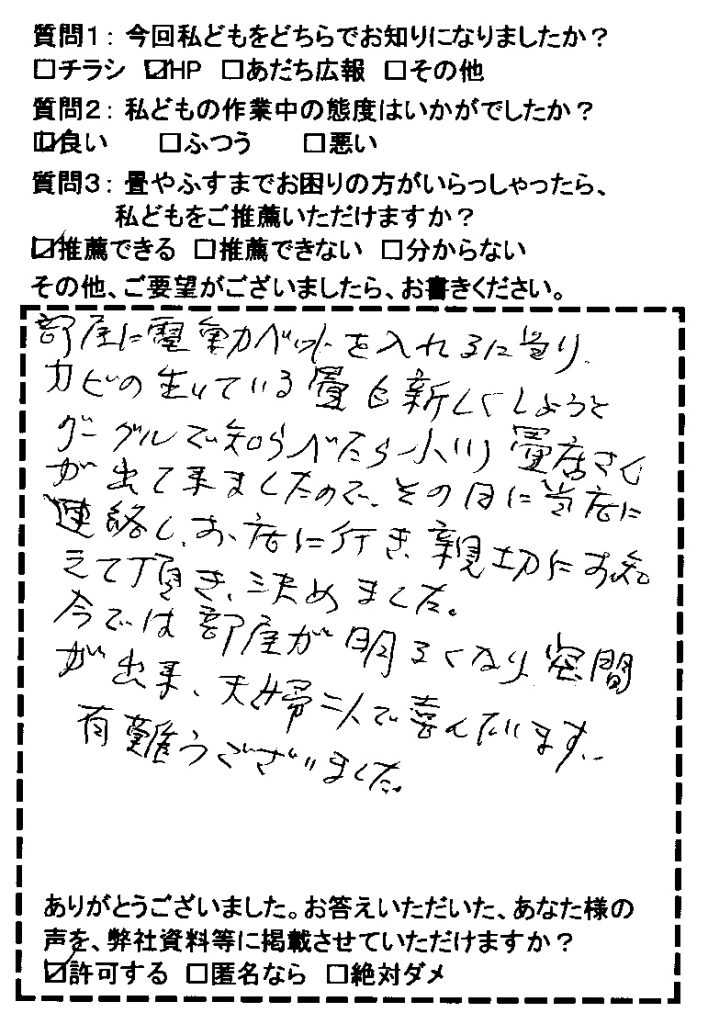 質問1：今回私どもをどちらでお知りになりましたか？
□チラシ ☑HP □あだち広報 □その他
質問2：私どもの作業中の態度はいかがでしたか？
☑良い □ふつう □悪い
質問3：畳やふすまでお困りの方がいらっしゃったら、
私どもをご推薦いただけますか？
☑推薦できる □推薦できない □分からない
その他、ご要望がございましたら、お書きください。
部屋に電動ベットを入れるに当り、
カビの生いている畳も新しくしようと
グーグルで知らべたら小川畳店さん
が出て来ましたので、その日に当店に
連絡し、お店に行き、親切にお知
えて頂き、決めました。
今では部屋が明るくなり、空間
が出来、夫婦二人で喜んでいます。
有難うございました。
ありがとうございました。お答えいただいた、あなた様の
声を、弊社資料等に掲載させていただけますか？
☑許可する □匿名なら □絶対ダメ